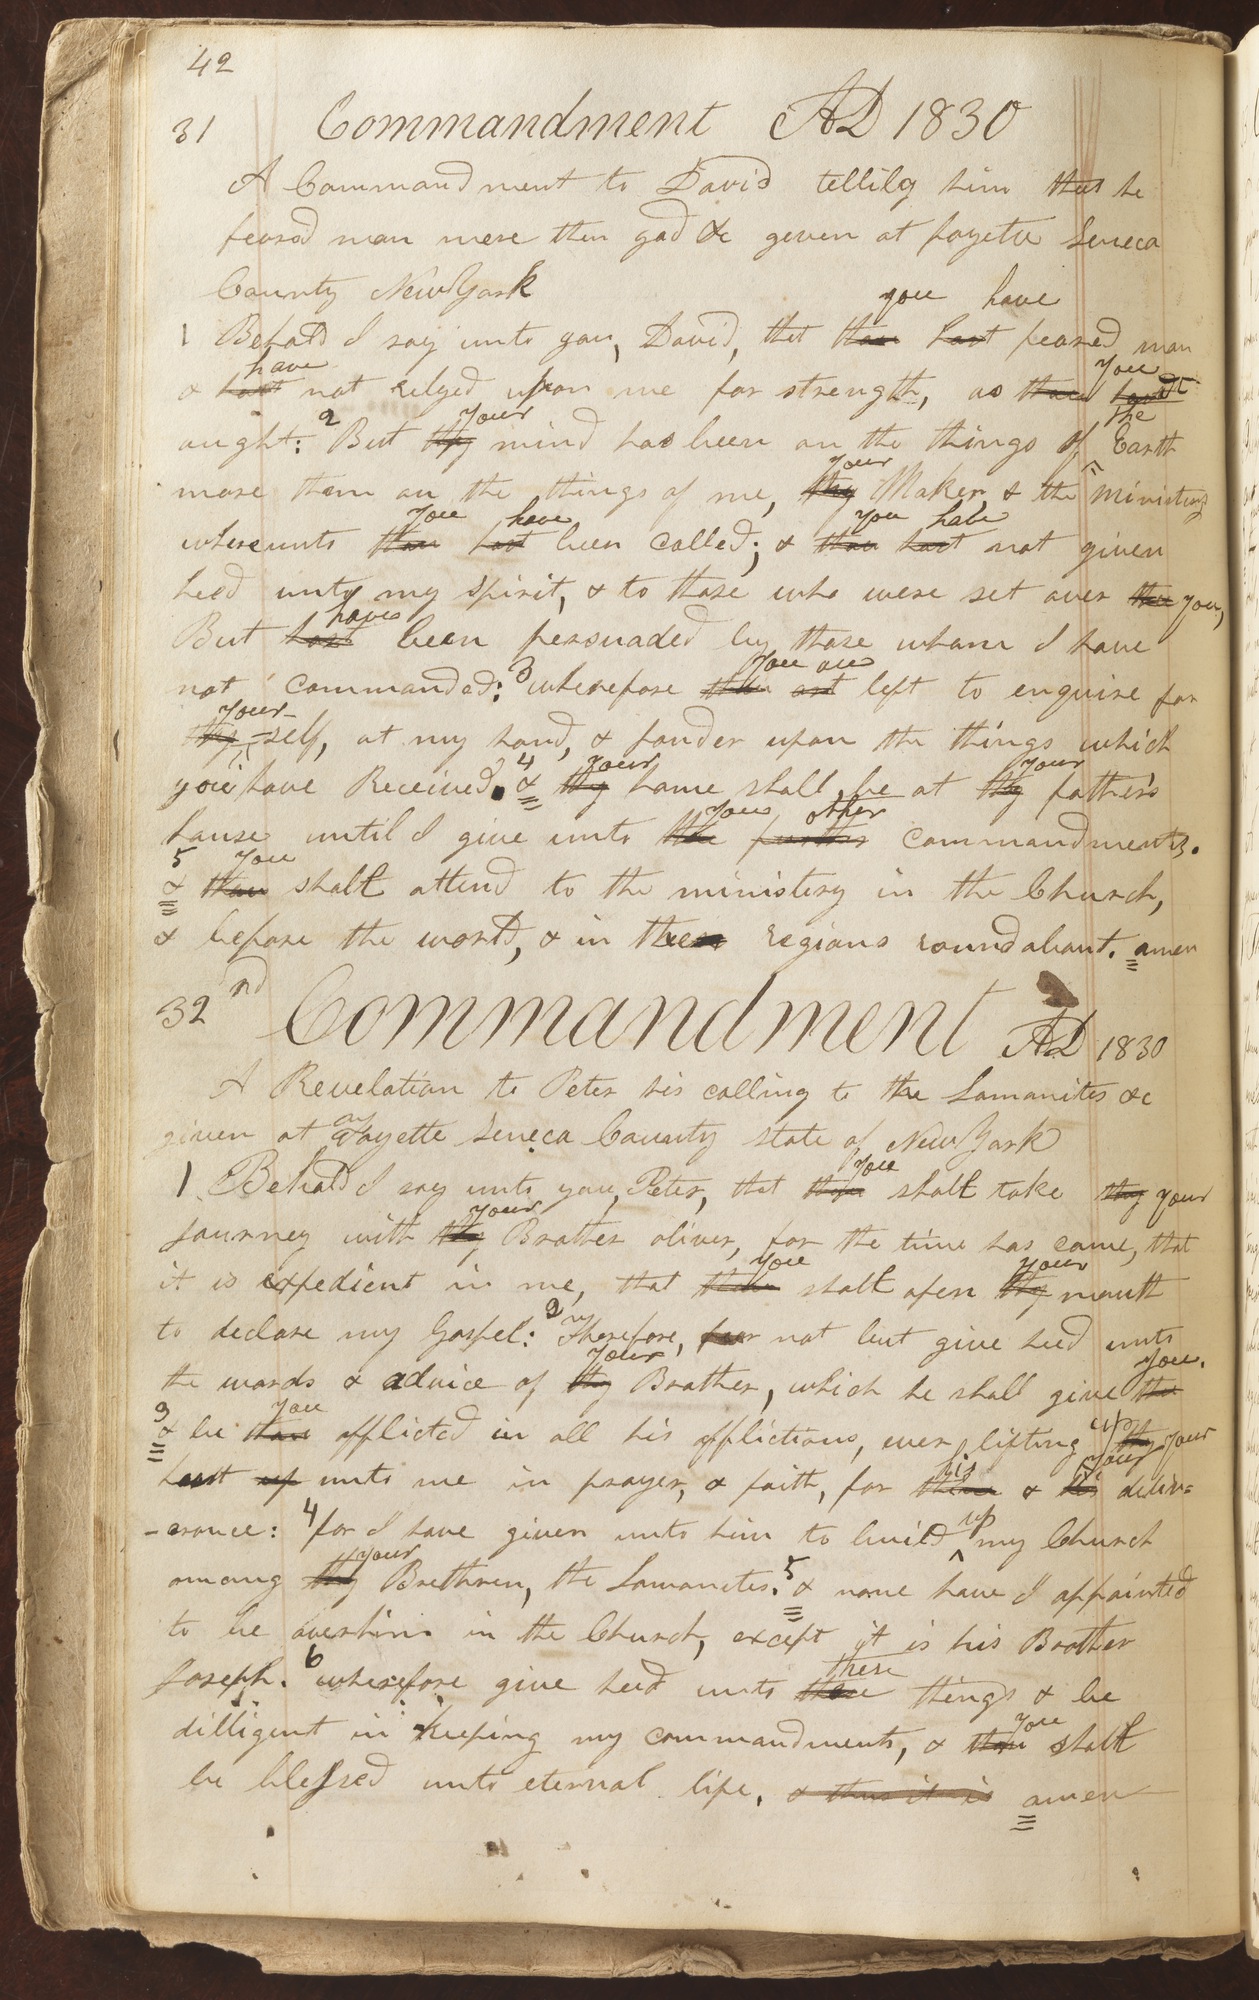 42
31 Commandment AD 1830
A Commandment to David tellilg him that he
feared man more then god &c given at fayette Seneca
County New York
you have
1 Behold I say unto you, David, that thou hast feared man
have you
& hast not relyed upon me for strength, as thou
2 your the
ought: But thy mind has been on the things of Earth
your
more than on the things of me, thy Maker, & the ministery
you have you have
whereunto thou hast been called; & thou hast not given
heed unto my spirit, & to those who were set over thee you,
have
But hast been persuaded by those whom I have
3 you are
not commanded: wherefore thou art left to enquire for
your-
thy-self, at my hand, & ponder upon the things which
4 your your
you have Received. & thy home shall be at thy father's
you other
house until I give unto thee further commandments.
5 you
& thou shalt attend to the ministery in the Church,
& before the world, & in the regions round about. amen
32nd Commandment AD 1830
A Revelation to Peter his calling to the Lamanites &c
given at Fayette Seneca County state of New York
you
1 Behold I say unto you, Peter, that thou shalt take thy your
your
Journey with thy Brother oliver, for the time has come, that
you your
it is expedient in me, that thou shalt open thy mouth
2
to declare my Gospel: Therefore, fear not but give heed unto
your you.
the words & advice of thy Brother, which he shall give thee
3 you up
& be thou afflicted in all his afflictions, ever lifting thy your
his your
heart up unto me in prayer, & faith, for thine & his deliv=
4 up
-erance: for I have given unto him to build my Church
your 5
among thy Brethren, the Lamanites. & none have I appointed
to be over him in the Church, except it is his Brother
6 these
Joseph. wherefore give heed unto these things & be
you
dilligent in keeping my commandments, & thou shalt
be blessed unto eternal life, & thus it is amen